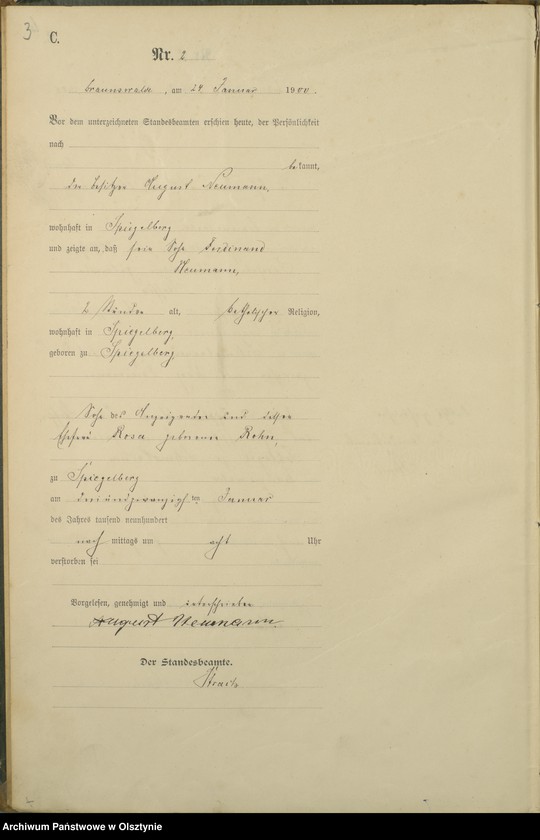 3
C.
Nr. 2
Braunswalde, am 24 Januar 1900.
Vor dem unterzeichneten Standesbeamten erschien heute, der Persönlichkeit
nach
bekannt,
der Besitzer August Neumann,
wohnhaft in Spiegelberg
und zeigte an, daß sein Sohn Ferdinand
Neumann,
2 Stunden alt, katholischer Religion,
wohnhaft in Spiegelberg,
geboren zu Spiegelberg,
Sohn des Anzeigenden und dessen
Ehefrau Rosa geborene Rohn,
zu Spiegelberg
am dreiundzwanzigsten Januar
des Jahres tausend neunhundert
nach mittags um acht Uhr
verstorben sei
Vorgelesen, genehmigt und unterschrieben
August Neumann
Der Standesbeamte.
Archiwum Państwowe w Olsztynie